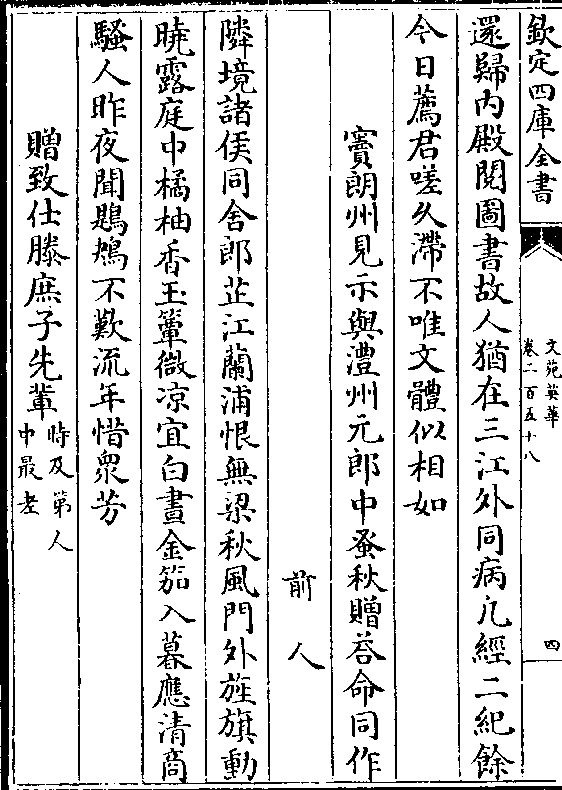 欽定四庫全書
文苑英華
卷二百五十八
四
還歸内殿閱圖書故人猶在三江外同病凢經二紀餘
今日薦君嗟久滯不唯文體似相如
竇朗州見示與澧州元郎中蚤秋贈荅命同作
前人
隣境諸侯同舍郎芷江蘭浦恨無梁秋風門外旌旗動
曉露庭中橘柚香玉簟微凉宜白晝金笳入暮應清商
騷人昨夜聞鶗鴂不歎流年惜衆芳
贈致仕滕庶子先輩
時及第人
中最老